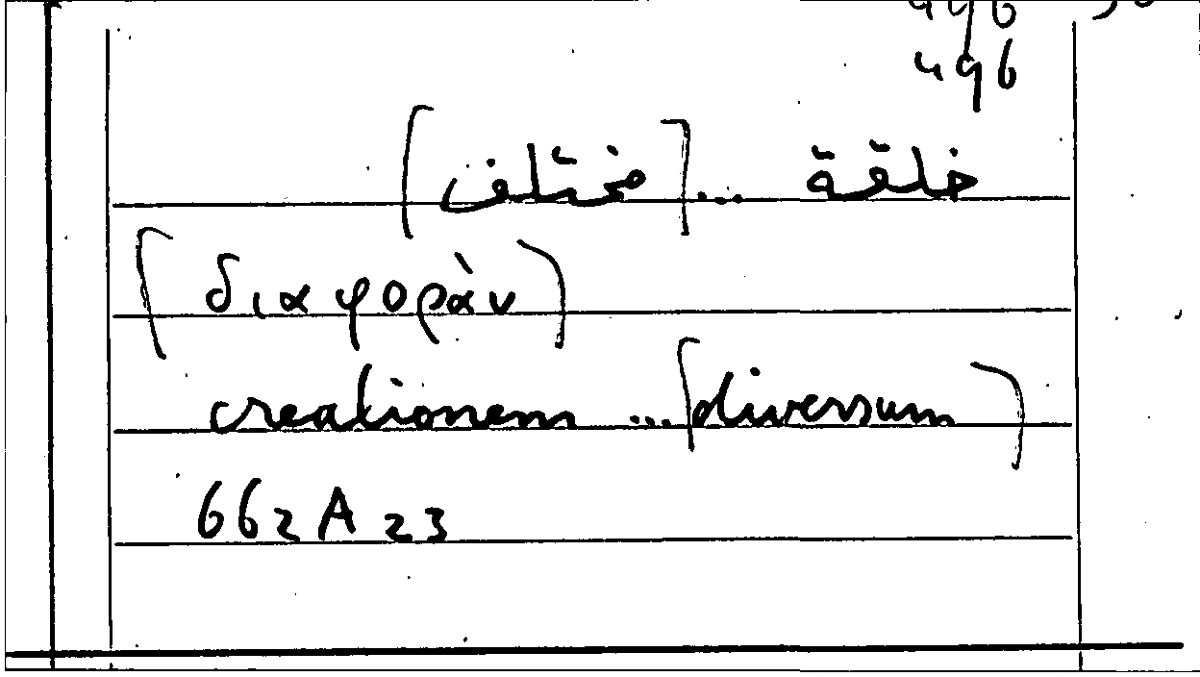 496
496
خلقة ... [مختلف]
[διαφοράν)
creationem ... [diversum)
662 A 23